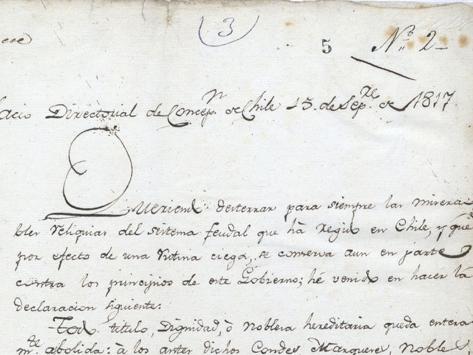 3
5 Nº 2
acio Directorial de Concepⁿ de Chile 15. de Sepʳᵉ de 1817.
Queriendo desterrar para siempre las misera
bles reliquias del sistema feudal que ha regido en Chile, y que
por efecto de una rutina ciega, se conserva aun en parte
contra los principios de este Gobierno; hé venido en hacer la
declaracion siguiente:
Todo titulo, Dignidad, ò Nobleza hereditaria queda entera
mᵗᵉ abolida: à los antes dichos Condes Marqueses, Nobles